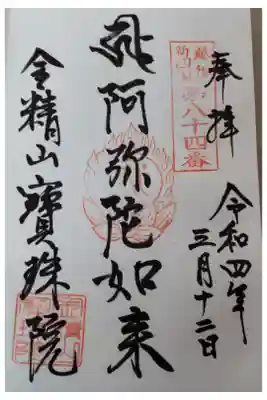 奉拝
令和四年
三月十二日
第八十四番
阿弥陀如来
金精山寶珠院